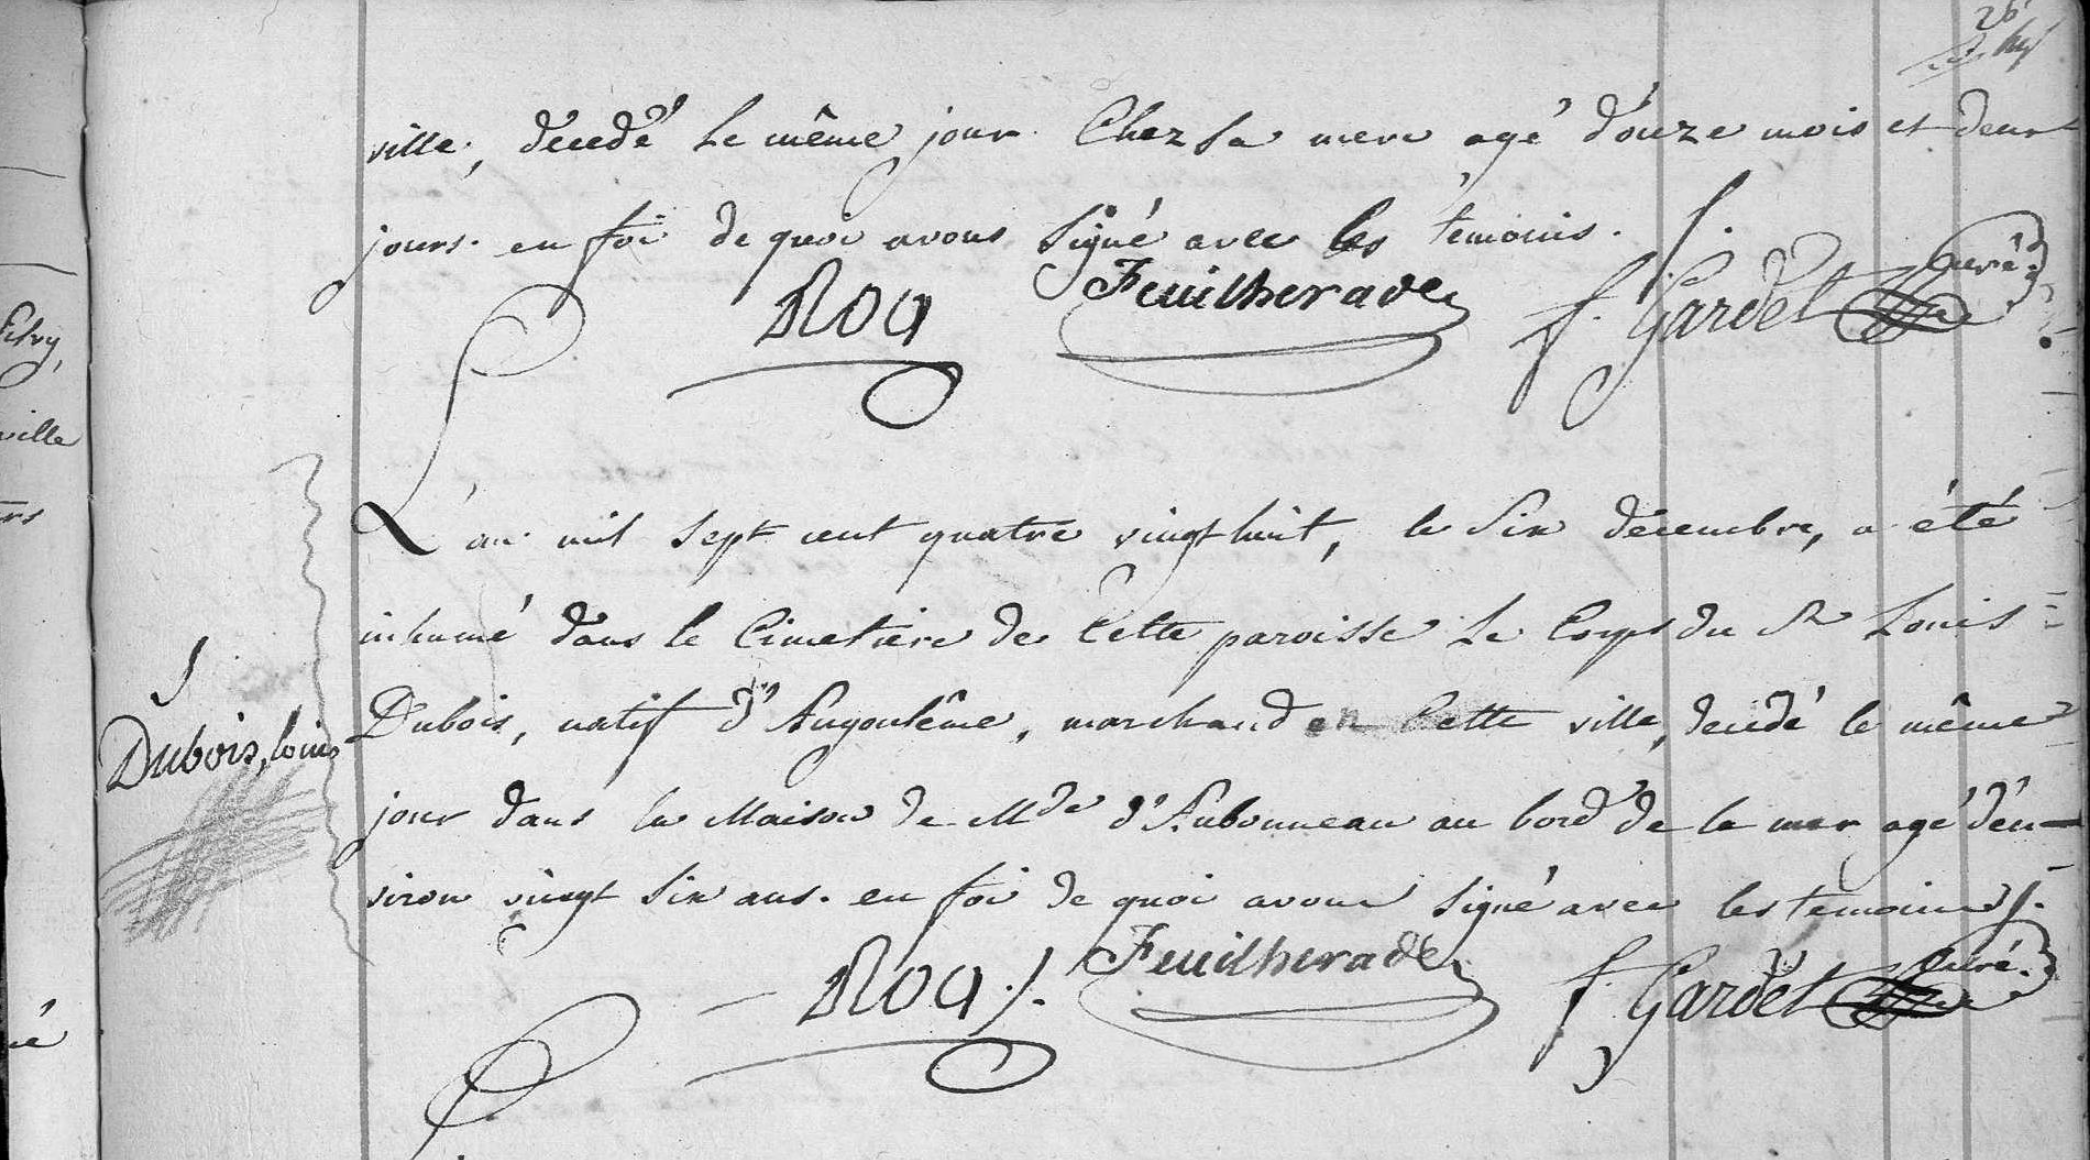 26
ville, décedé le même jour Chez sa mere agé d'ouze mois et deux
jours. en foi de quoi avons signé avec les témoins.
Roq Feuilherade f. Gardel curé
L'an mil sept cent quatre vingt huit, le six décembre, a été
inhumé dans le Cimetiere de Cette paroisse le Corps du Sr Louis
Dubois, natif d'Angoulême, marchand en Cette ville, decédé le même
Dubois, louis
jour dans la Maison de Mde d'Aubonneau au bord de la mer agé d'en-
viron vingt six ans. en foi de quoi avons signé avec les temoins
Roq Feuilherade f. Gardel curé